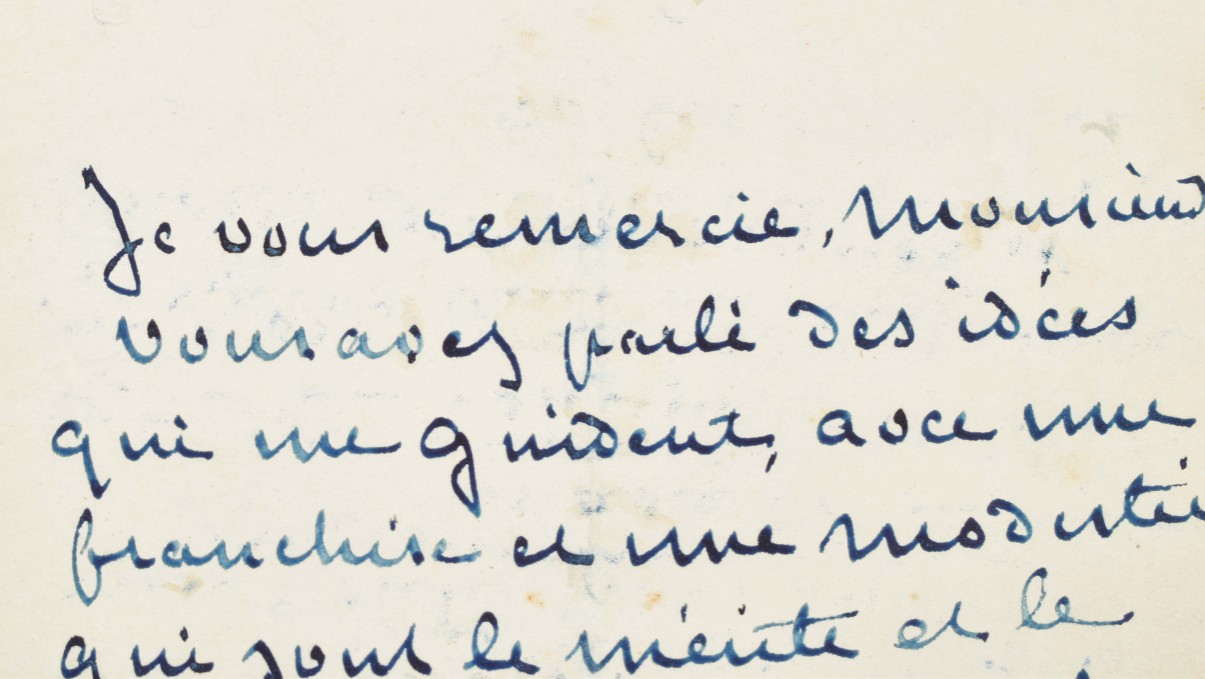 Je vous remercie, Monsieur
vous avez parlé des idées
qui me guident, avec une
franchise et une modestie
qui sont le mérite et le